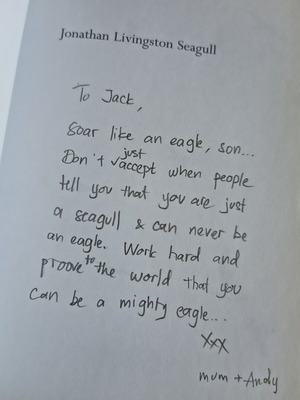 Jonathan Livingston Seagull
To Jack,
Soar like an eagle, son...
Don't just accept when people
tell you that you are just
a seagull & can never be
an eagle. Work hard and
proove to the world that you
can be a mighty eagle...
xxx
mum + Andy